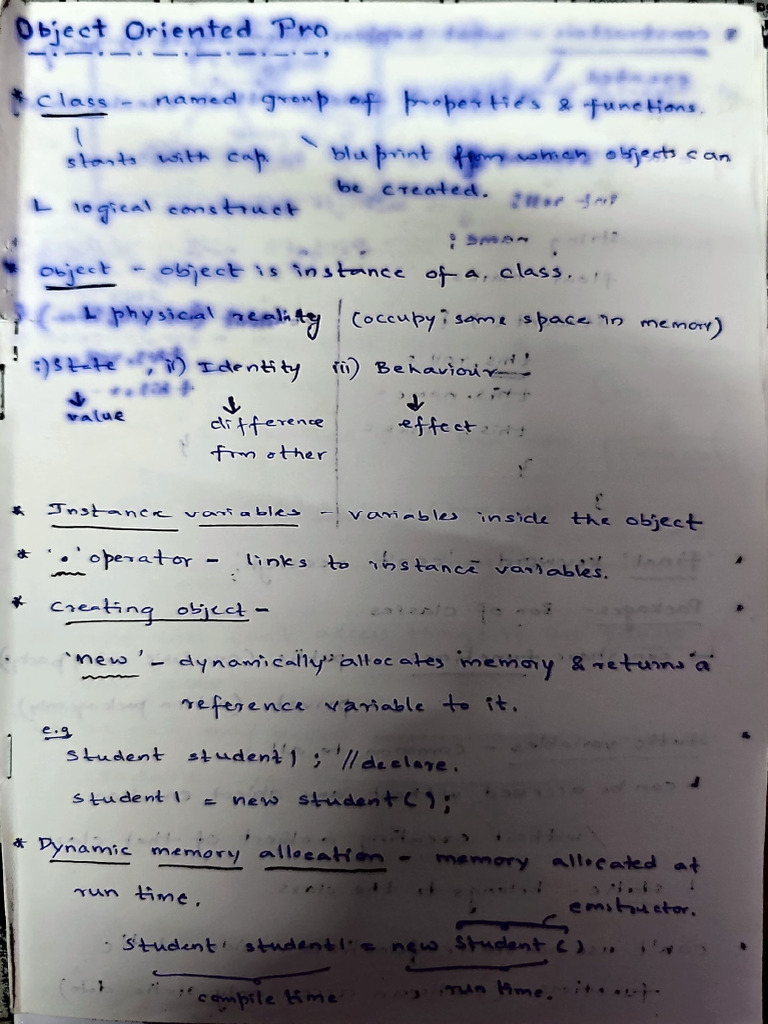 Object Oriented Pro
* Class - named group of properties & functions.
starts with cap. bluprint from which objects can
be created.
L logical construct
* Object - object is instance of a class.
L physical reality (occupy some space in memory)
i) State, ii) Identity iii) Behaviour
↓ value ↓ difference ↓ effect
frm other
* Instance variables - variables inside the object
* '.' operator - links to instance variables.
* Creating object -
'new' - dynamically allocates memory & returns a
reference variable to it.
e.g
Student student1 ; //declare.
student1 = new student();
* Dynamic memory allocation - memory allocated at
run time.
constructor.
Student student1 = new Student ()
compile time run time.